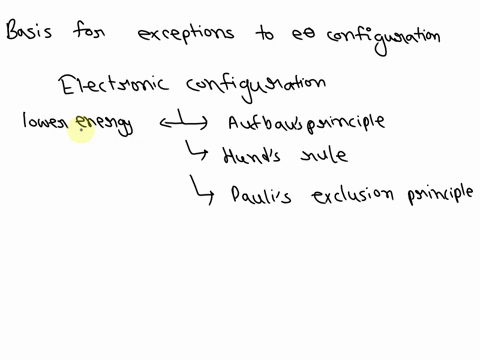 Basis for exceptions to e⊖ configuration
Electronic configuration
lower energy ← ↳ Aufbau's principle
↳ Hund's rule
↳ Pauli's exclusion principle